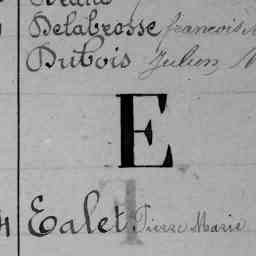 Delabrosse françois
Dubois Julien
E
Ealet Pierre Marie